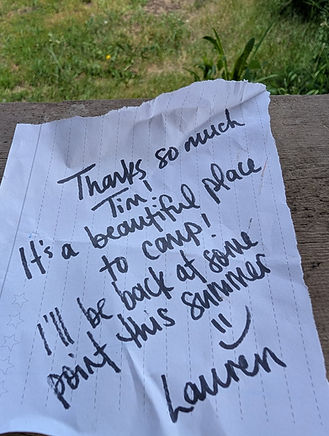 Thanks so much
Tim!
It's a beautiful place
to camp!
I'll be back at some
point this summer
=)
Lauren